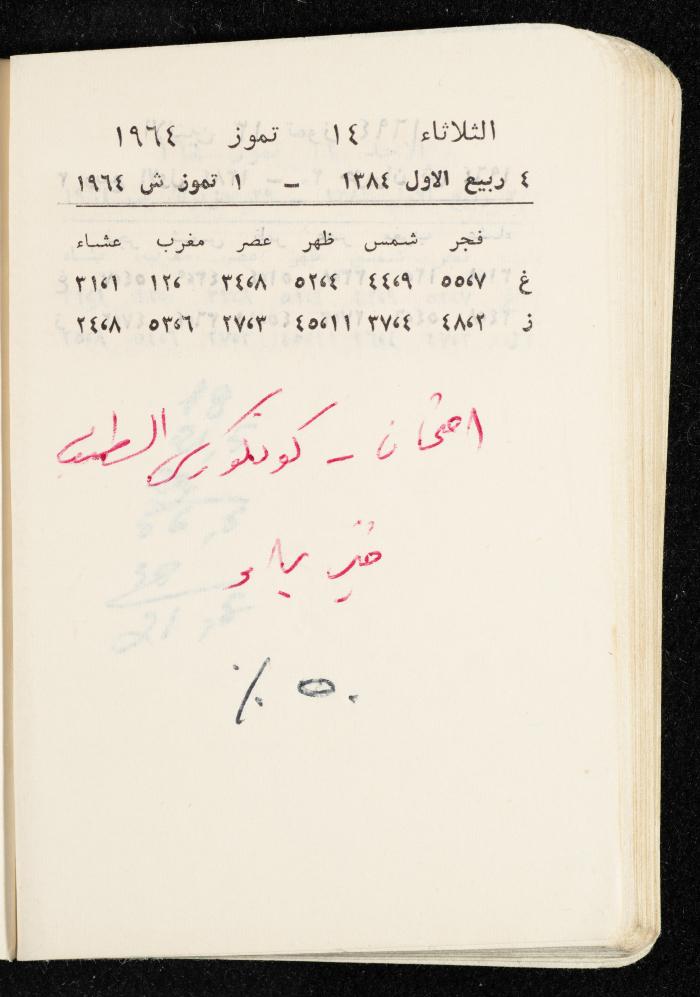 الثلاثاء ١٤ تموز ١٩٦٤
٤ ربيع الاول ١٣٨٤ – ١ تموز ش ١٩٦٤
فجر شمس ظهر عصر مغرب عشاء
غ ٧،٥٥ ٩،٤٤ ٤،٥٢ ٨،٣٤ ،١٢ ١،٣١
ز ٢،٤٨ ٤،٣٧ ١١،٤٥ ٣،٢٧ ٦،٥٣ ٨،٢٤
امتحان – كونكورس الطب
فيزياء
٥٠٪